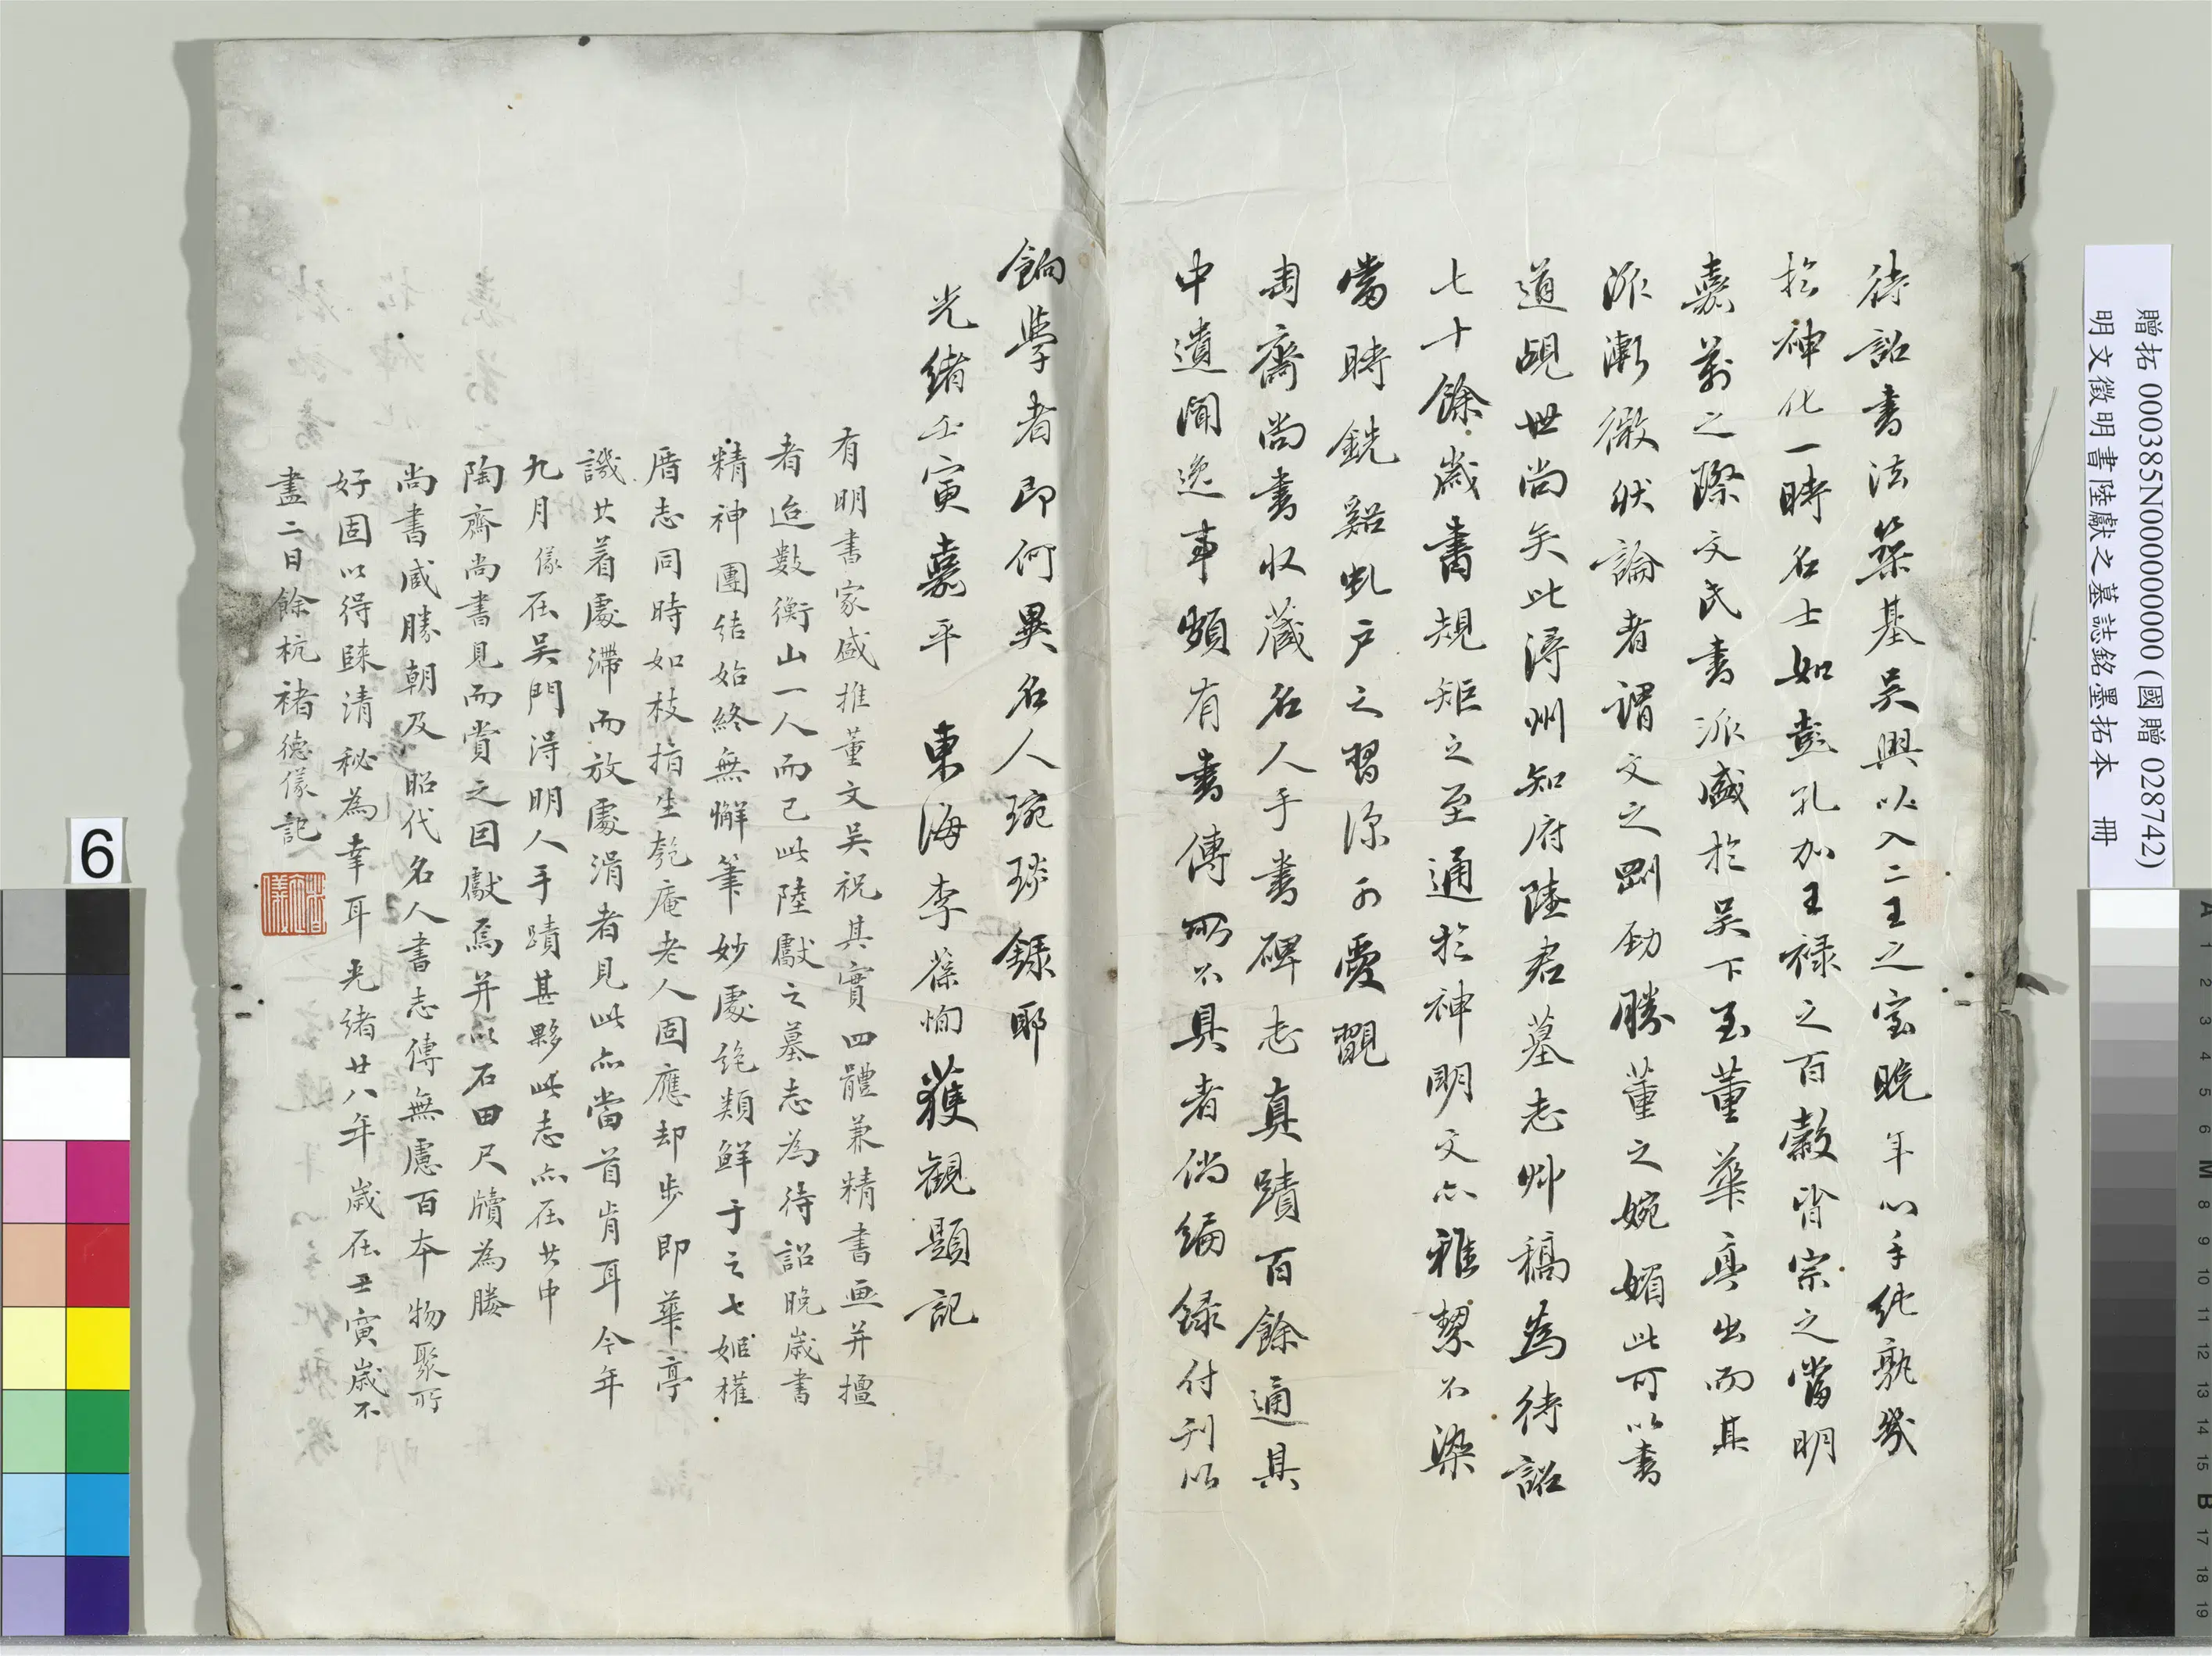 待詔書法築基吳興以入二王之室晚年心手純孰幾
於神化一時名士如彭孔加王祿之百穀皆宗之當明
嘉萬之際文氏書派盛於吳下至董華亭出而其
派漸微然論者謂文之剛勁勝董之婉媚此可以書
道覘世尚矣此潯州知府陸君墓志艸稿為待詔
七十餘歲書規矩之至通於神明文亦雅絜不染
當時銑谿虬戶之習深可愛翫
匋齋尚書收藏名人手書碑志真蹟百餘通其
中遺聞逸事頗有書傳所不具者倘編錄付刊以
餉學者即何異名人琬琰錄耶
光緒壬寅嘉平 東海李葆恂獲觀題記
有明書家盛推董文吳祝其實四體兼精書画并擅
者迨數衡山一人而已此陸獻之墓志為待詔晚歲書
精神團結始終無懈筆妙處詭類鮮于之七姬權
厝志同時如枝指生匏庵老人固應却步即華亭
譏其着處滯而放處滑者見此亦當首肯耳今年
九月儀在吳門得明人手蹟甚夥此志亦在其中
陶齋尚書見而賞之因獻焉并以石田尺牘為媵
尚書臧勝朝及昭代名人書志傳無慮百本物聚所
好固以得睐清秘為幸耳光緒廿八年歲在壬寅歲不
盡二日餘杭褚德儀記
褚德儀
6
贈拓 000385N000000000 (國贈 028742)
明文徵明書陸獻之墓誌銘墨拓本 冊
A 1 2 3 4 5 6 M 8 9 10 11 12 13 14 15 B 17 18 19